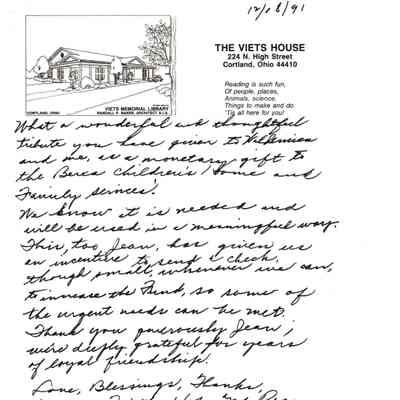 12/18/91
THE VIETS HOUSE
224 N. High Street
Cortland, Ohio 44410
Reading is such fun,
Of people, places,
Animals, science,
Things to make and do
'Tis all here for you!
VIETS MEMORIAL LIBRARY
CORTLAND, OHIO
RANDALL P. BAKER, ARCHITECT A.I.A.
What a wonderful and thoughtful
tribute you have given to
and me, as a monetary gift to
the Berea Children's Home and
Family Services!
We know it is needed and
will be used in a meaningful way.
This, too, Jean, has given us
an incentive to send a check,
though small, whenever we can,
to increase the Fund, so some of
the urgent needs can be met.
Thank you generously Jean;
we're deeply grateful for years
of loyal friendship.
Love, Blessings, Thanks,